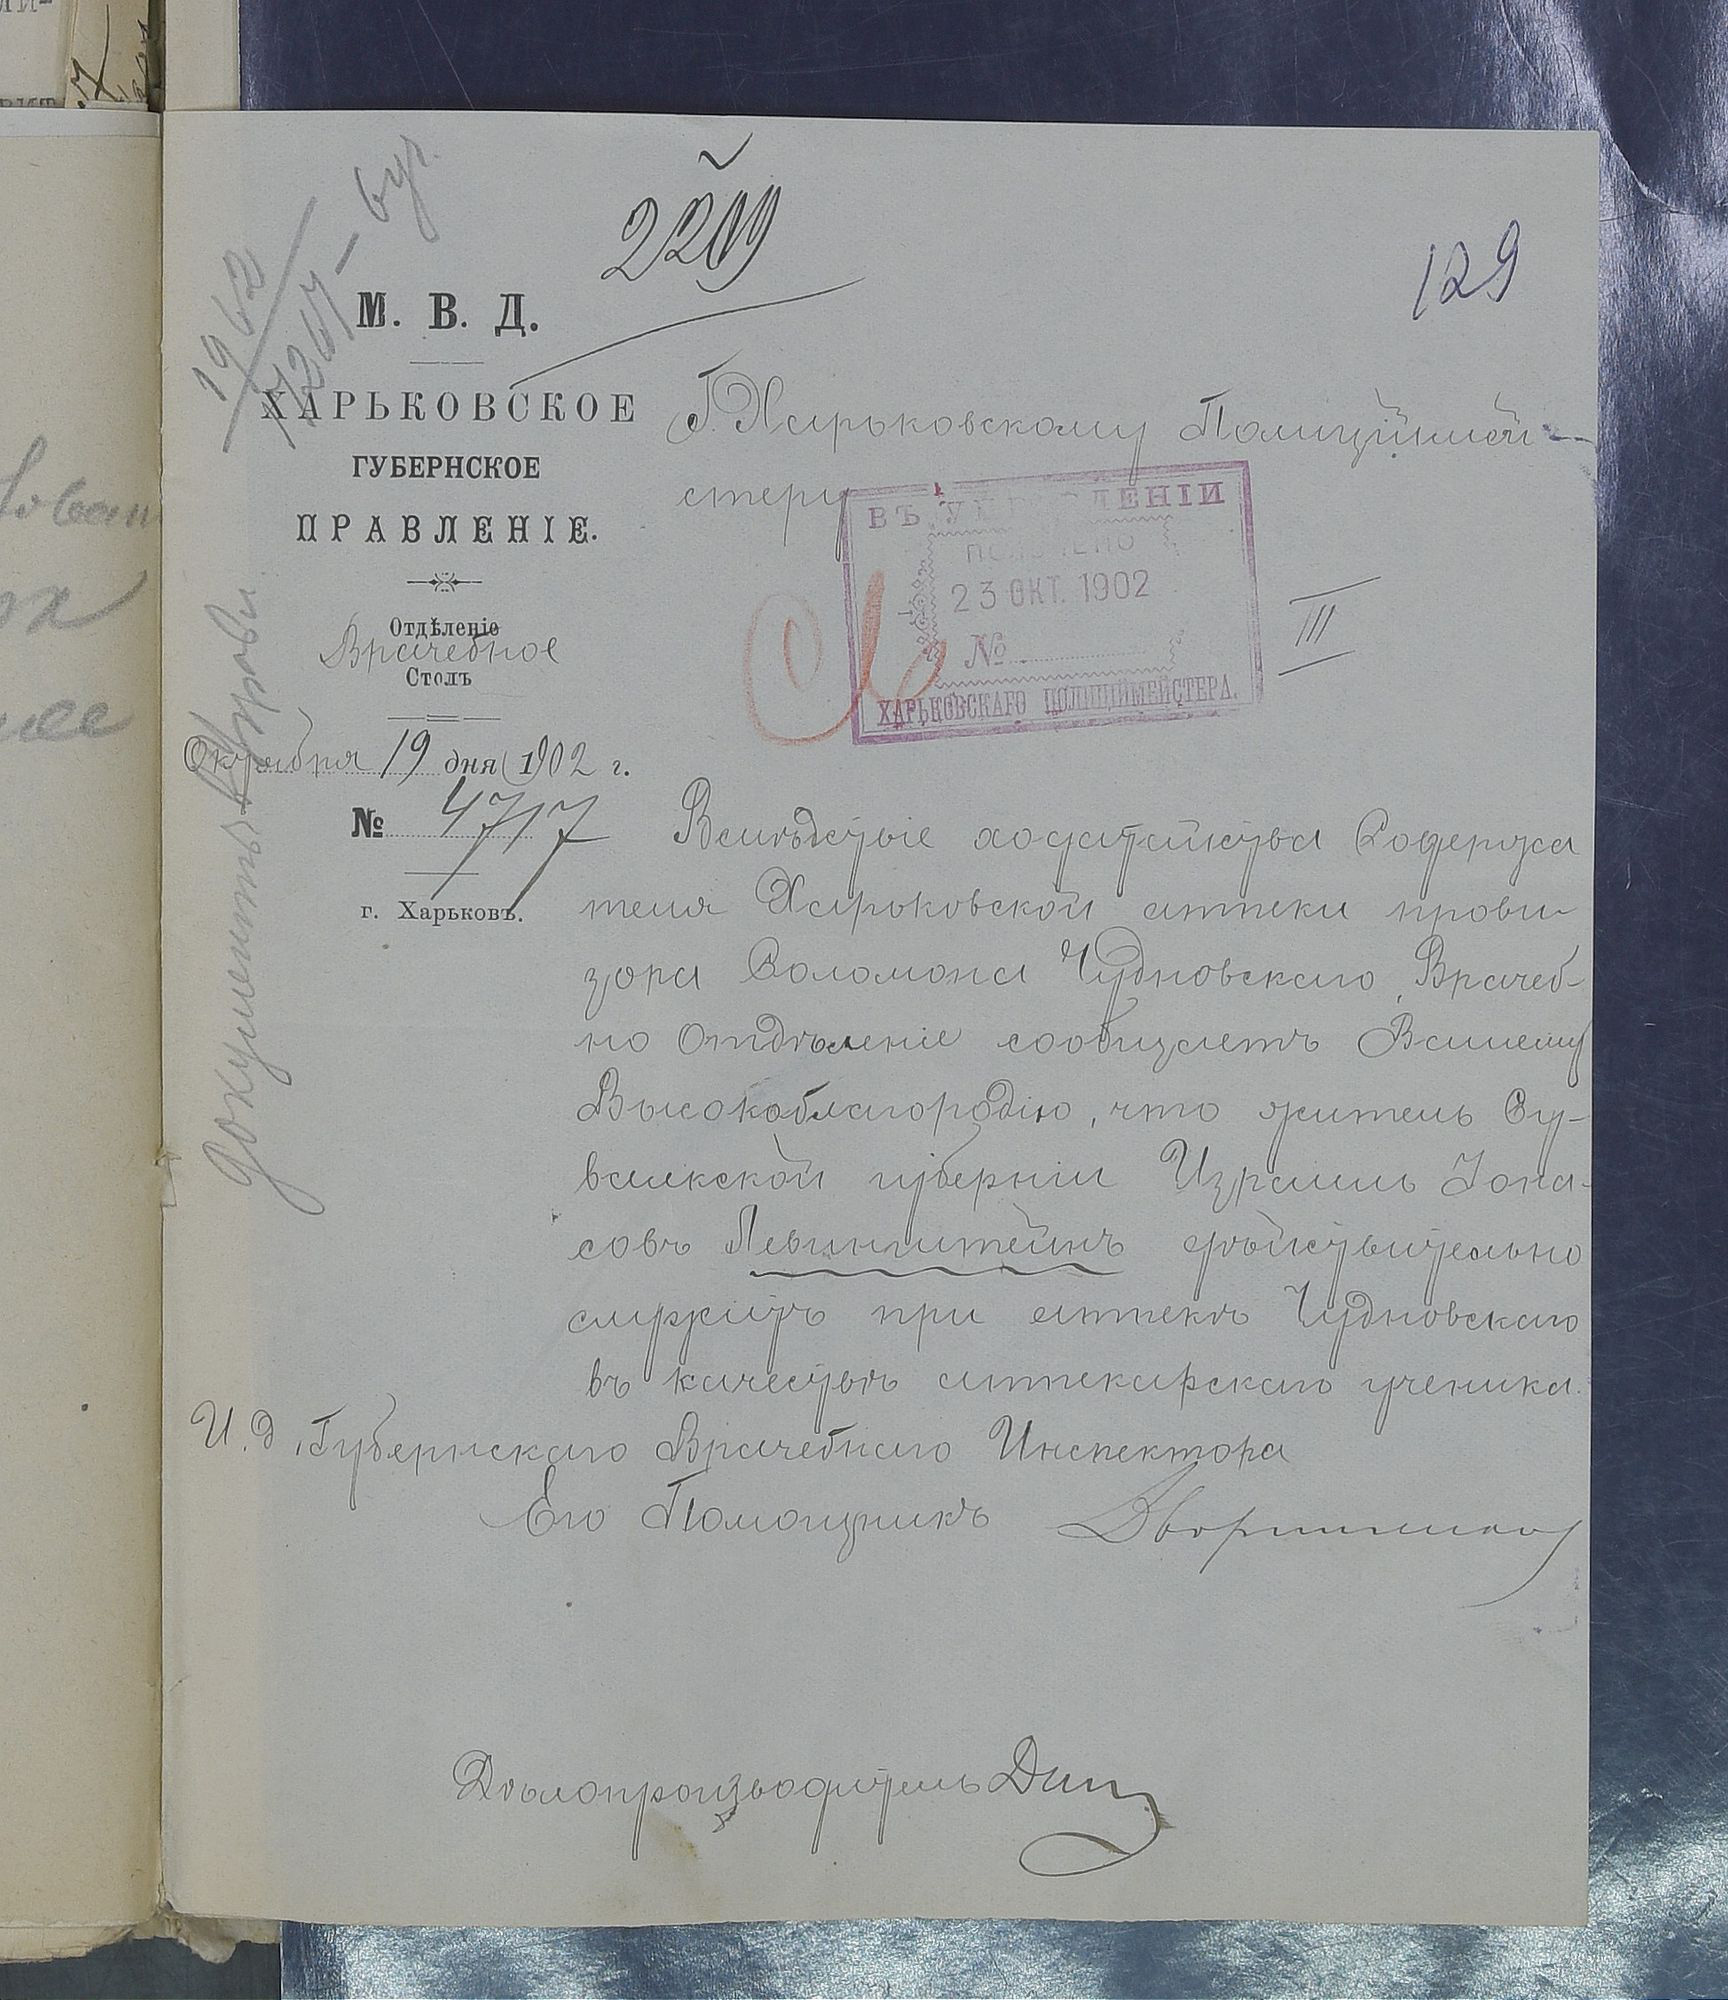 2209
129
1962
М. В. Д.
ХАРЬКОВСКОЕ
ГУБЕРНСКОЕ
ПРАВЛЕНІЕ.
Отдѣленіе
Врачебное
Столъ
Октября 19 дня 1902 г.
№ 4717
г. Харьковъ.
Г. Харьковскому Полиціймей-
стеру
ВЪ УПРАВЛЕНІИ
ПОЛУЧЕНО
23 ОКТ. 1902
№
ХАРЬКОВСКАГО ПОЛИЦІЙМЕЙСТЕРА.
III
Вслѣдствіе ходатайства Содержа
теля Харьковской аптеки прови
зора Соломона Чудновскаго, Врачеб-
но Отдѣленіе сообщаетъ Вашему
Высокоблагородію, что житель Су-
валкской губерніи Израиль Іона-
совъ Левинштейнъ дѣйствительно
служитъ при аптекѣ Чудновскаго
въ качествѣ аптекарскаго ученика.
И. д. Губернскаго Врачебнаго Инспектора
Его Помощникъ
Дѣлопроизводитель
Документы